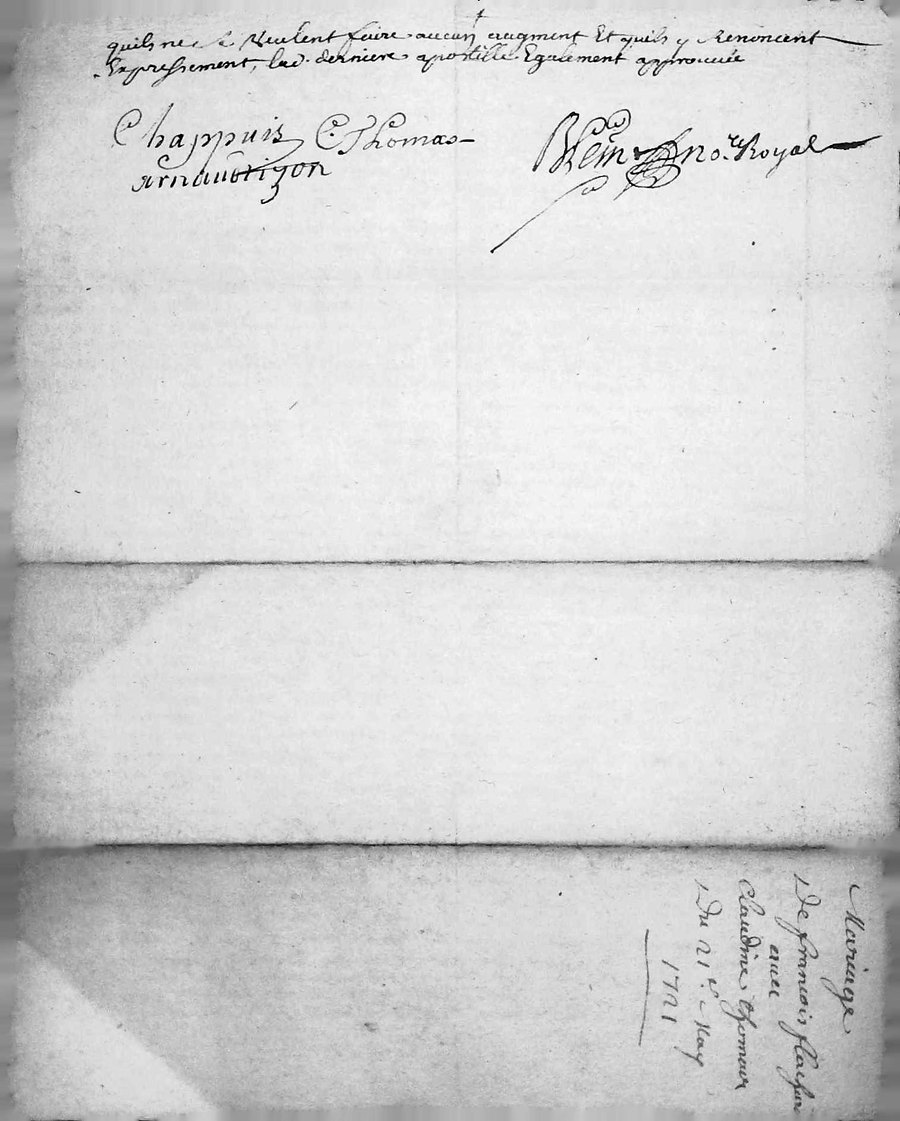 quils ne se Veulent faire aucun augment Et quils y Renoncent
Expressement, lad. derniere apostille Egalement approuvée
Chappuis C. Thomas
Arnaud
no.re Royal
Mariage
De francois
avec
Claudine Thomas
Du 21e May
1721